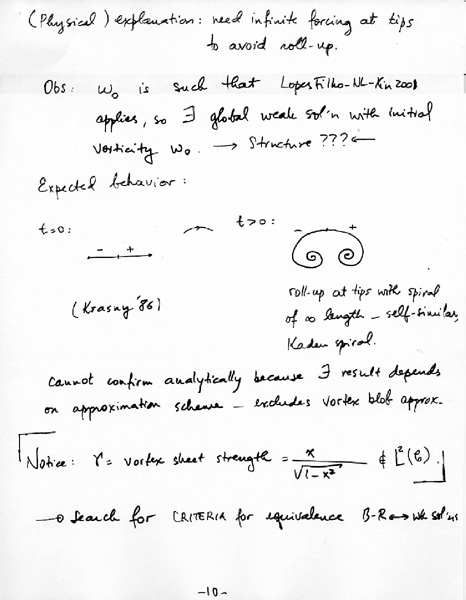 (Physical) explanation: need infinite forcing at tips
to avoid roll-up.
Obs: ω₀ is such that LopesFilho-NL-Xin 2001
applies, so ∃ global weak sol'n with initial
vorticity ω₀. → Structure ??? ←
Expected behavior:
t=0: t>0:
- + - +
(Krasny '86)
roll-up at tips with spiral
of ∞ length – self-similar,
Kaden spiral.
Cannot confirm analytically because ∃ result depends
on approximation scheme – excludes vortex blob approx.
Notice: γ = vortex sheet strength = x/√(1-x²) ∉ L²(C).
→ Search for CRITERIA for equivalence B-R ↔ wk sol'ns
-10-